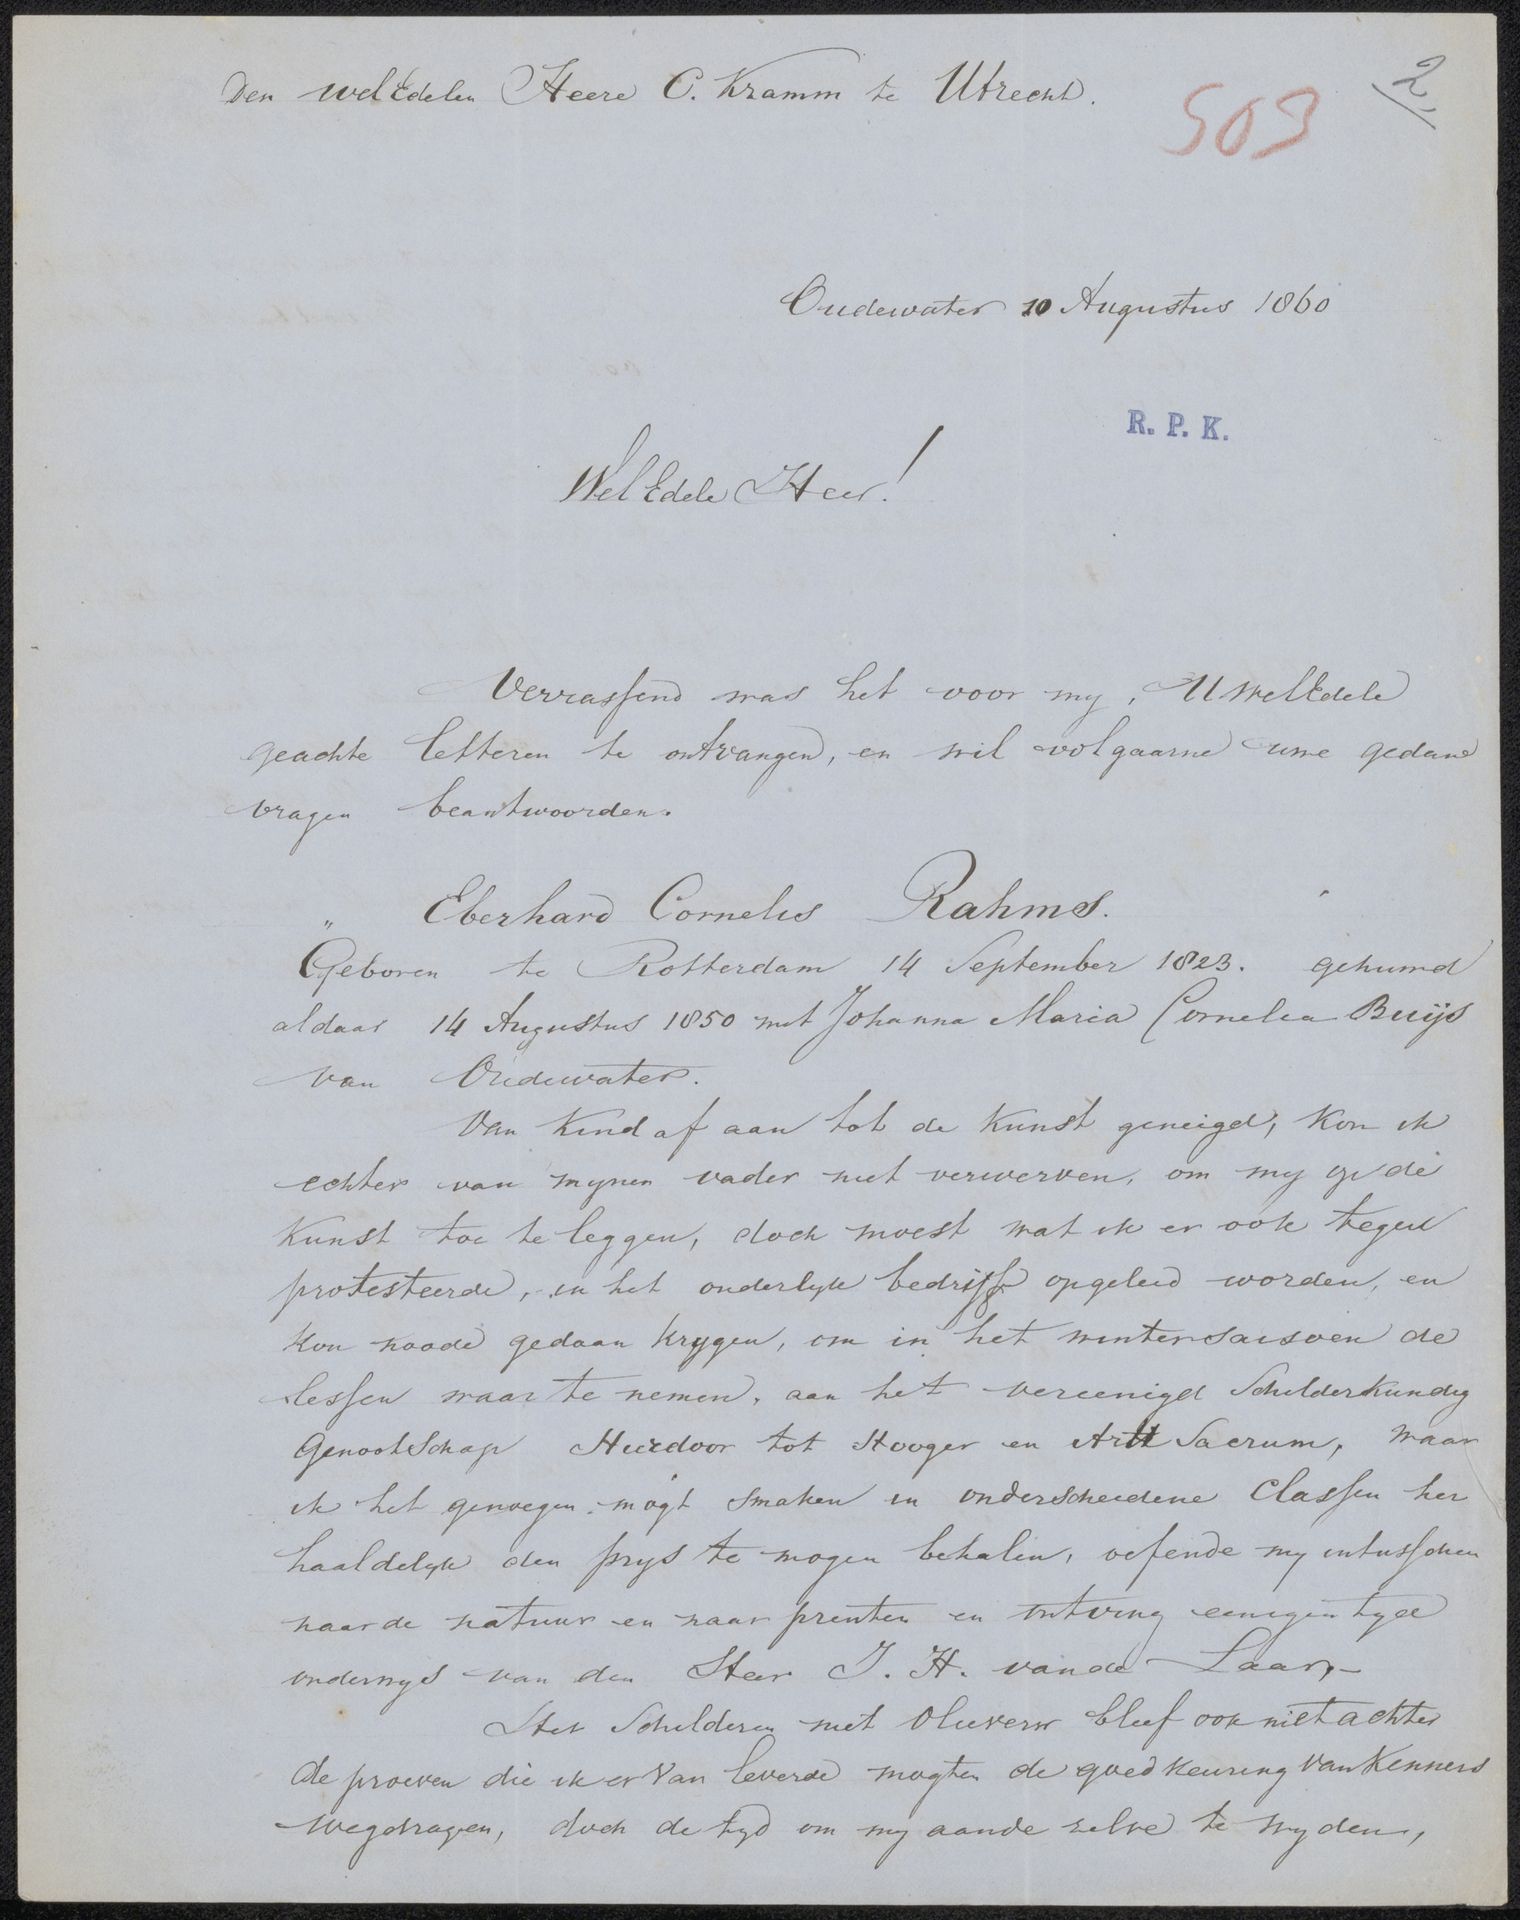 Den WelEdelen Heere C. Kramm te Utrecht.
503
2,
Oudewater 10 Augustus 1860
R. P. K.
WelEdele Heer!
Verrassend was het voor my, UWelEdele
geachte letteren te ontvangen, en wil volgaarne uwe gedane
vragen beantwoorden.
" Eberhard Cornelis Rahms.
Geboren te Rotterdam 14 September 1823. gehuwd
aldaar 14 Augustus 1850 met Johanna Maria Cornelia Buijs
van Oudewater.
Van kind af aan tot de kunst geneigd, kon ik
echter van mynen vader niet verwerven, om my op de
kunst toe te leggen, doch moest wat ik er ook tegen
protesteerde, in het ouderlyk bedrijf opgeleid worden, en
kon noode gedaan krygen, om in het wintersaisoen de
lessen waar te nemen, aan het vereenigd Schilderkundig
Genootschap Hierdoor tot Hooger en Arti Sacrum, waar
ik het genoegen mogt smaken in onderscheidene Classen her
haaldelyk den prys te mogen behalen, oefende my intusschen
naar de natuur en naar prenten en ontving eenigen tyd
onderwys van den Heer J. H. van de Laar,-
Het Schilderen met Olieverw bleef ook niet achter
de proeven die ik er van leverde mogten de goedkeuring van Kenners
wegdragen, doch de tyd om my aan de zelve te wyden,